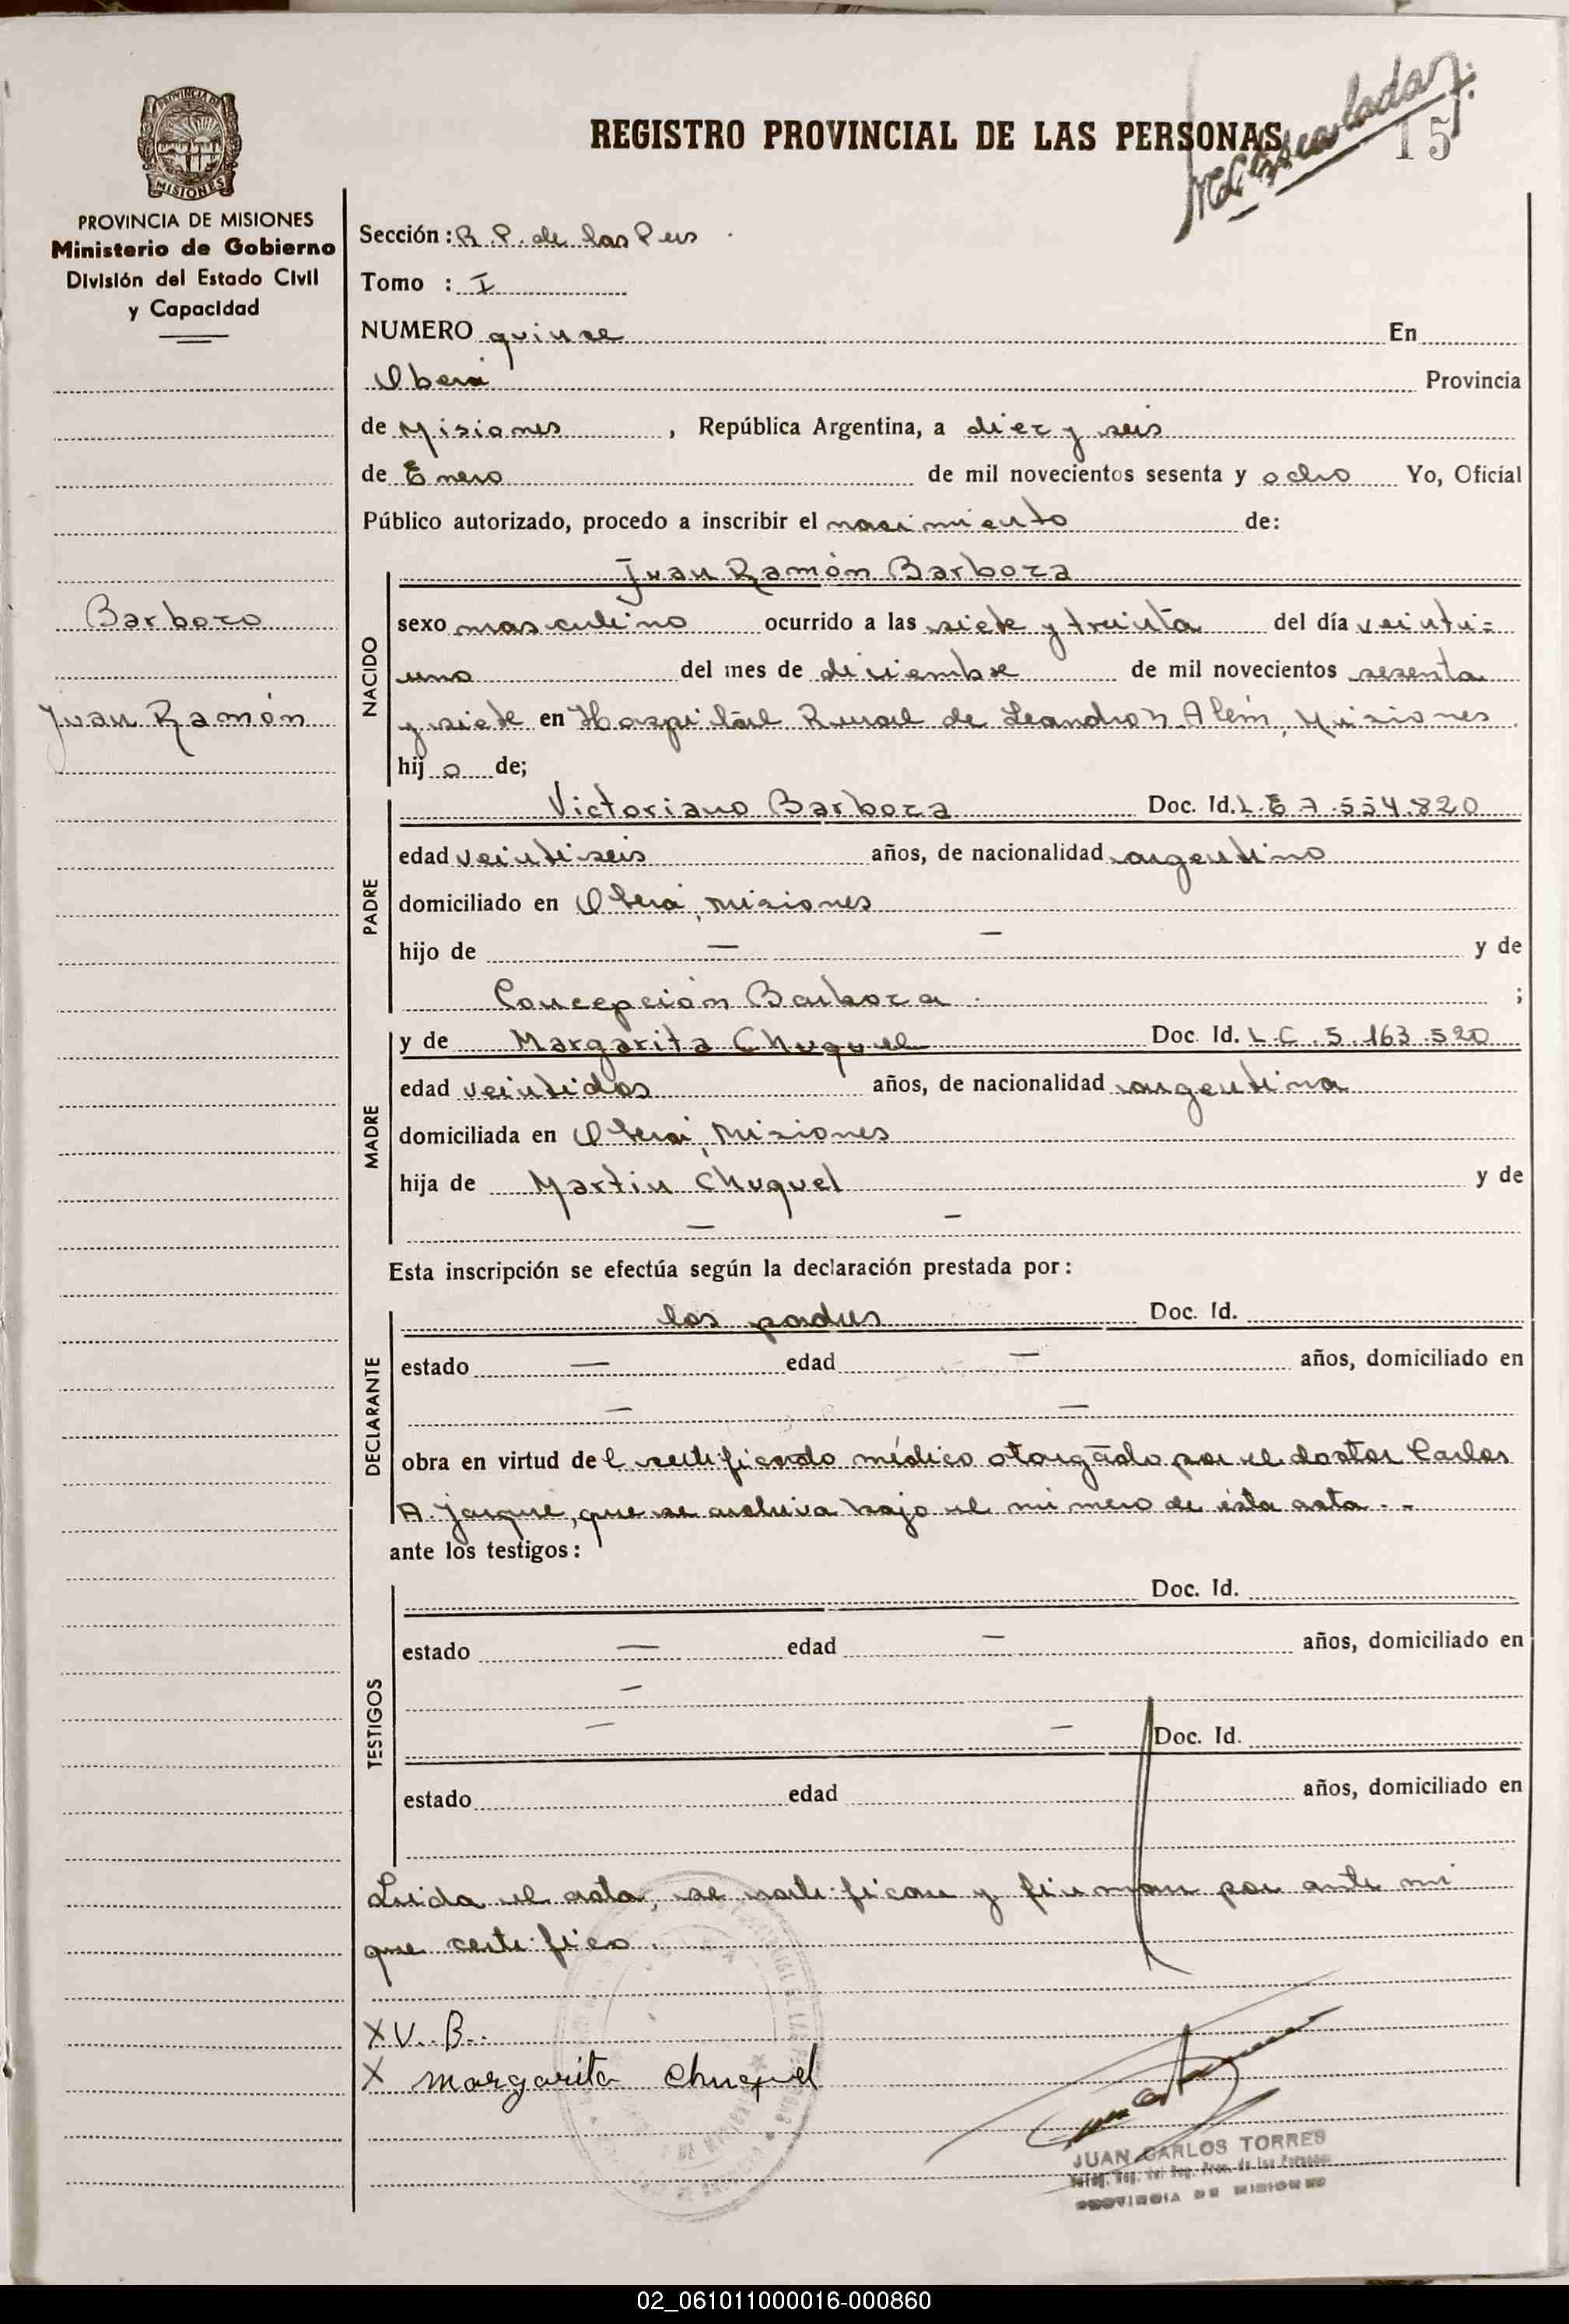 REGISTRO PROVINCIAL DE LAS PERSONAS
15
PROVINCIA DE
MISIONES
PROVINCIA DE MISIONES
Ministerio de Gobierno
División del Estado Civil
y Capacidad
Sección : R. P. de las Pers
Tomo : I
NUMERO quinse En
Oberá Provincia
de Misiones , República Argentina, a diez y seis
de Enero de mil novecientos sesenta y ocho Yo, Oficial
Público autorizado, procedo a inscribir el nacimiento de:
Juan Ramón Barboza
Barboza
Juan Ramón
NACIDO
sexo masculino ocurrido a las siete y treinta del día veinti=
uno del mes de diciembre de mil novecientos sesenta
y siete en Hospital Rural de Leandro N. Alem, Misiones
hij o de;
PADRE
Victoriano Barboza Doc. Id. L.E 7.554.820
edad veintiseis años, de nacionalidad argentino
domiciliado en Oberá, Misiones
hijo de — — y de
Concepción Barboza ;
MADRE
y de Margarita Chuquel Doc. Id. L.C. 5.163.520
edad veintidos años, de nacionalidad argentina
domiciliada en Oberá, Misiones
hija de Martin Chuquel y de
— —
Esta inscripción se efectúa según la declaración prestada por:
DECLARANTE
los padres Doc. Id.
estado — edad — años, domiciliado en
— —
obra en virtud de l certificado médico otorgado por el doctor Carlos
A. Jarque, que se archiva bajo el número de ésta acta. -
ante los testigos:
TESTIGOS
Doc. Id.
estado — edad — años, domiciliado en
—
— — Doc. Id.
estado edad años, domiciliado en
Leida el acta, se ratifican y firman por ante mi
que certifico.
X V. B.
X Margarita Chuquel
JUAN CARLOS TORRES
PROVINCIA DE MISIONES
02_061011000016-000860